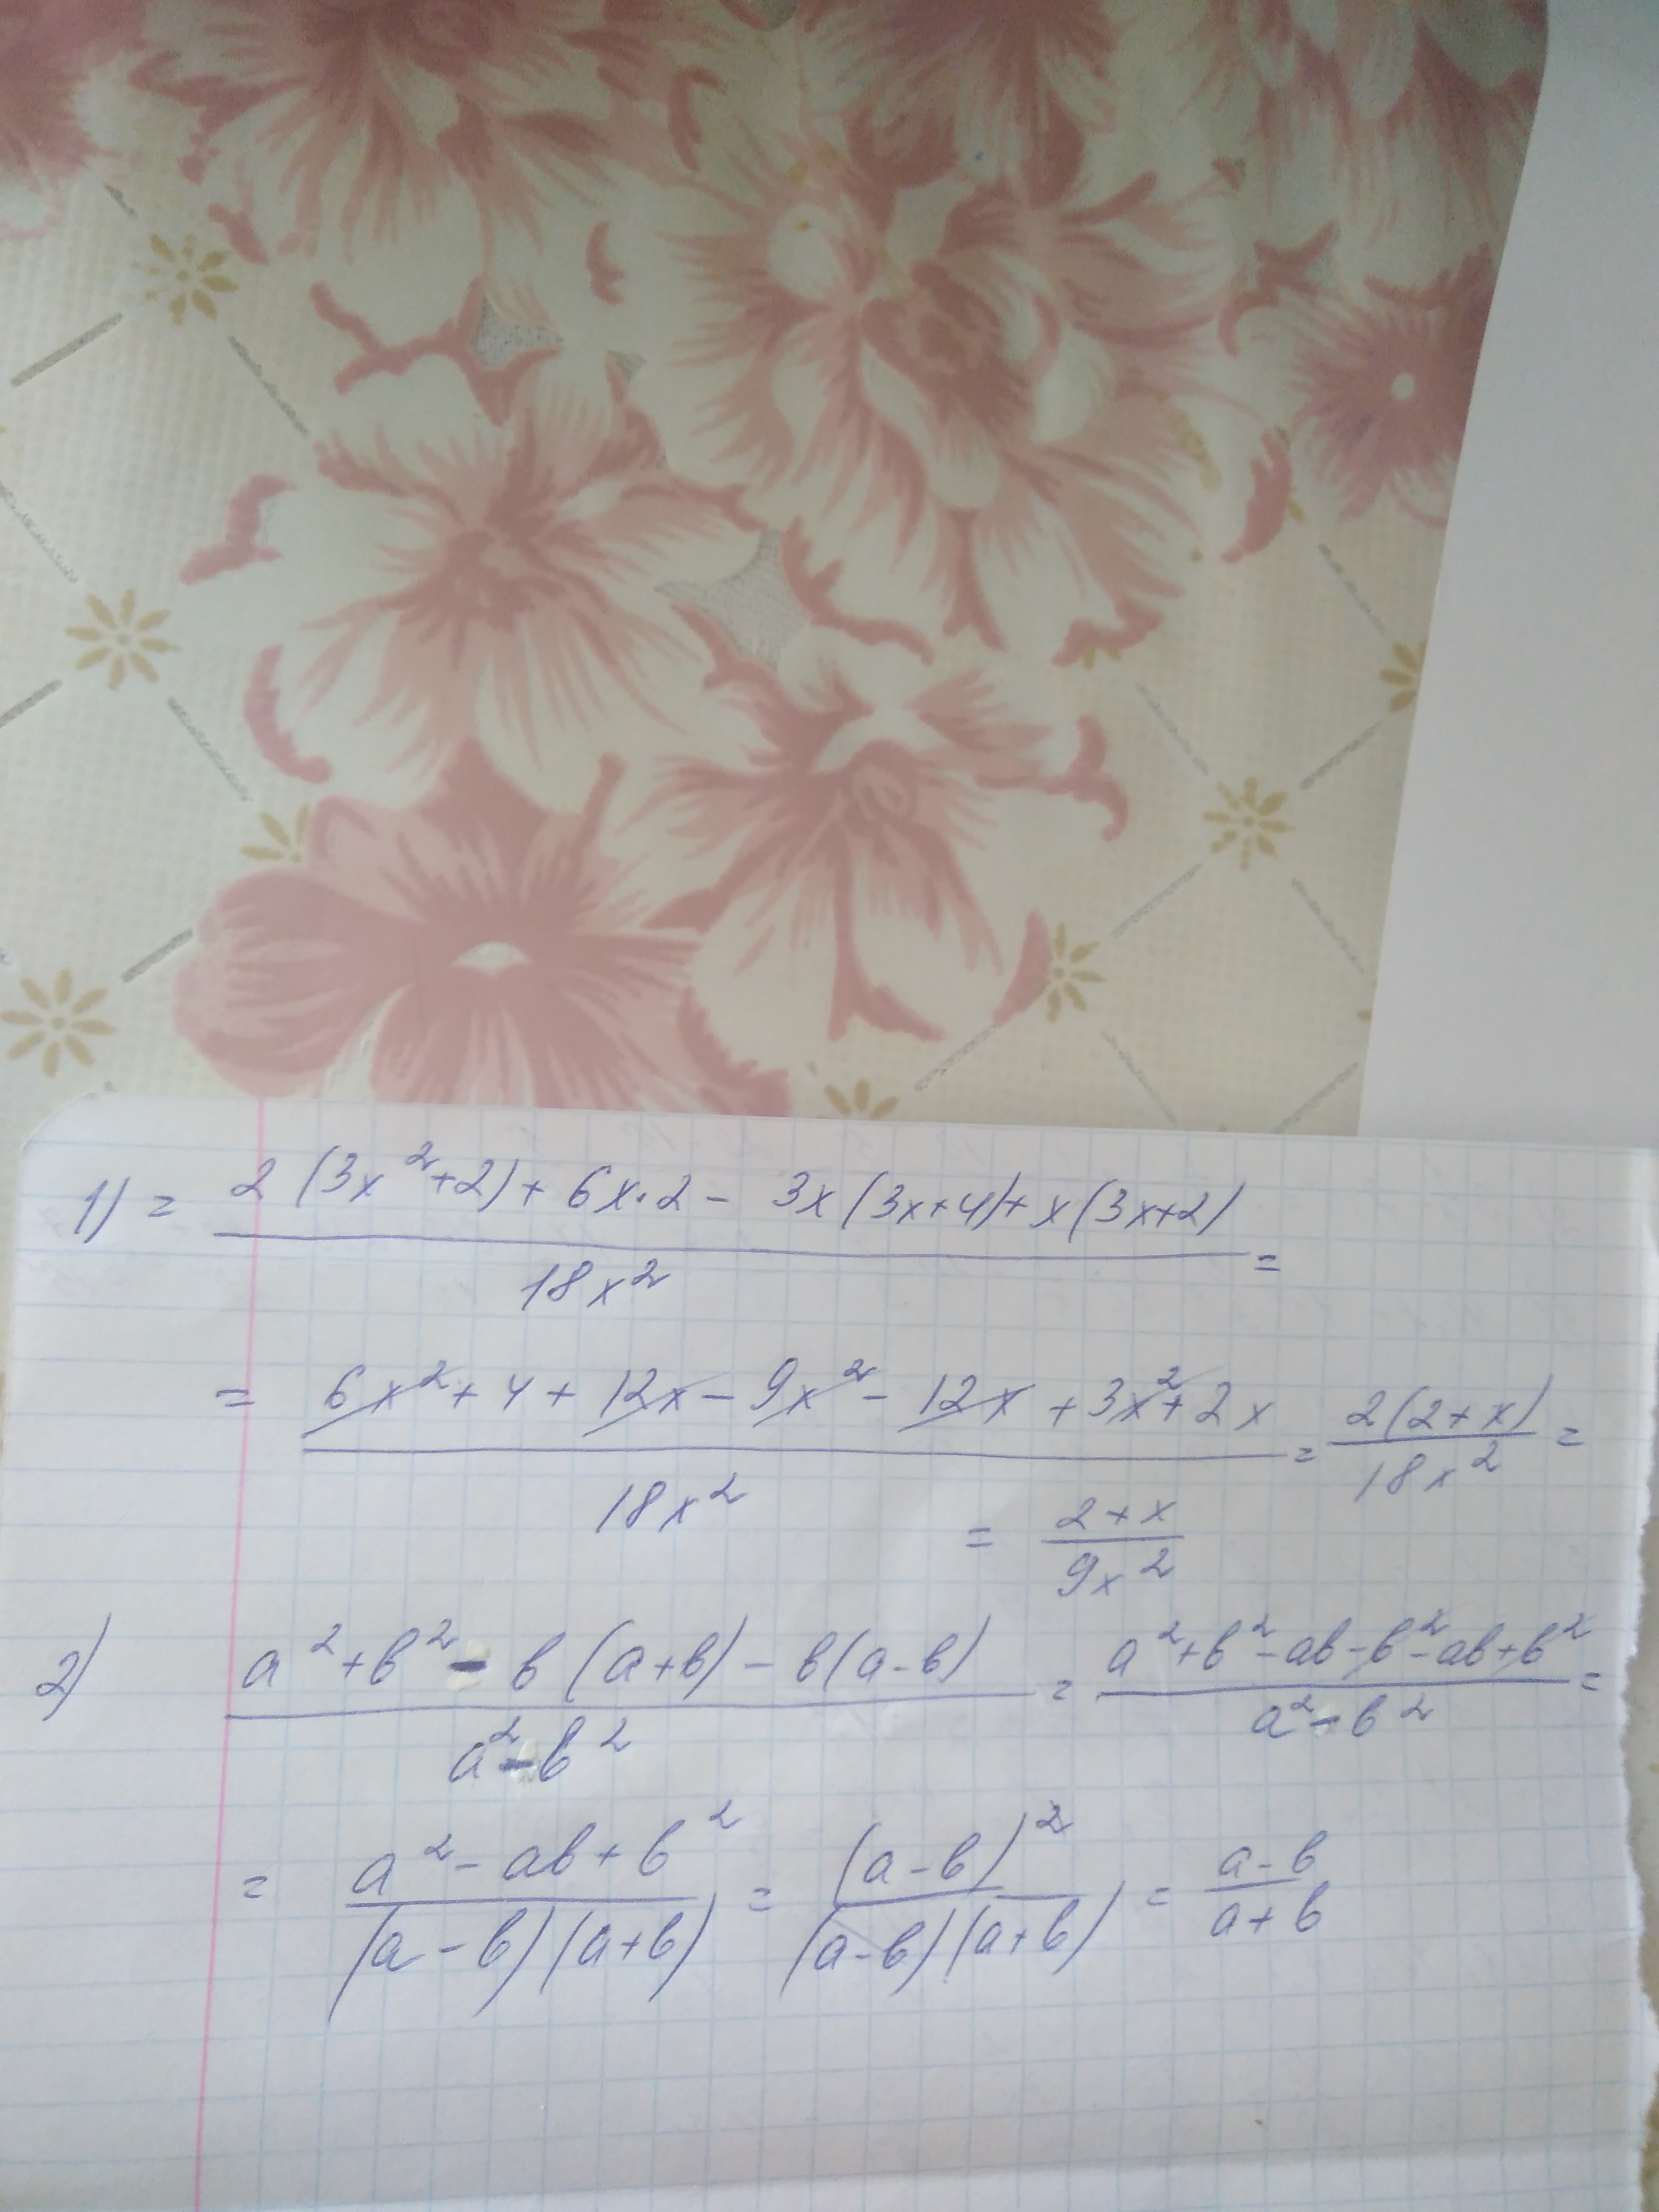 1) = (2(3x²+2)+6x·2-3x(3x+4)+x(3x+2))/18x² =
= (6x²+4+12x-9x²-12x+3x²+2x)/18x² = 2(2+x)/18x² =
= (2+x)/9x²
2) (a²+b²-b(a+b)-b(a-b))/(a²-b²) = (a²+b²-ab-b²-ab+b²)/(a²-b²) =
= (a²-ab+b²)/((a-b)(a+b)) = (a-b)²/((a-b)(a+b)) = (a-b)/(a+b)